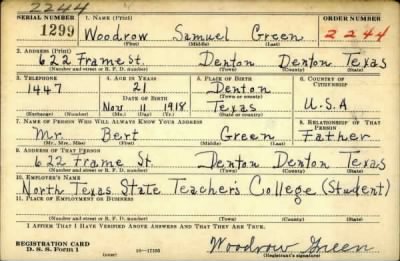 2244
SERIAL NUMBER 1. NAME (Print) ORDER NUMBER
1299 Woodrow Samuel Green 2244
(First) (Middle) (Last)
2. ADDRESS (Print)
622 Frame St. Denton Denton Texas
(Number and street or R. F. D. number) (Town) (County) (State)
3. TELEPHONE 4. AGE IN YEARS 5. PLACE OF BIRTH 6. COUNTRY OF CITIZENSHIP
1447 21 Denton
DATE OF BIRTH (Town or county)
Nov 11 1918 Texas U.S.A
(Exchange) (Number) (Mo.) (Day) (Yr.) (State or country)
7. NAME OF PERSON WHO WILL ALWAYS KNOW YOUR ADDRESS 8. RELATIONSHIP OF THAT PERSON
Mr. Bert Green Father
(Mr., Mrs., Miss) (First) (Middle) (Last)
9. ADDRESS OF THAT PERSON
622 Frame St. Denton Denton Texas
(Number and street or R. F. D. number) (Town) (County) (State)
10. EMPLOYER'S NAME
North Texas State Teacher's College (Student)
11. PLACE OF EMPLOYMENT OR BUSINESS
(Number and street or R. F. D. number) (Town) (County) (State)
I AFFIRM THAT I HAVE VERIFIED ABOVE ANSWERS AND THAT THEY ARE TRUE.
REGISTRATION CARD Woodrow Green
D. S. S. Form 1 (over) (Registrant's signature)